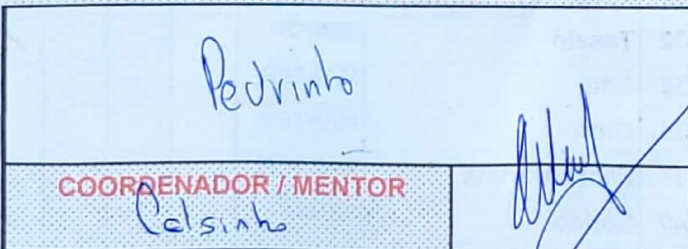 Pedrinho
COORDENADOR / MENTOR
Celsinho